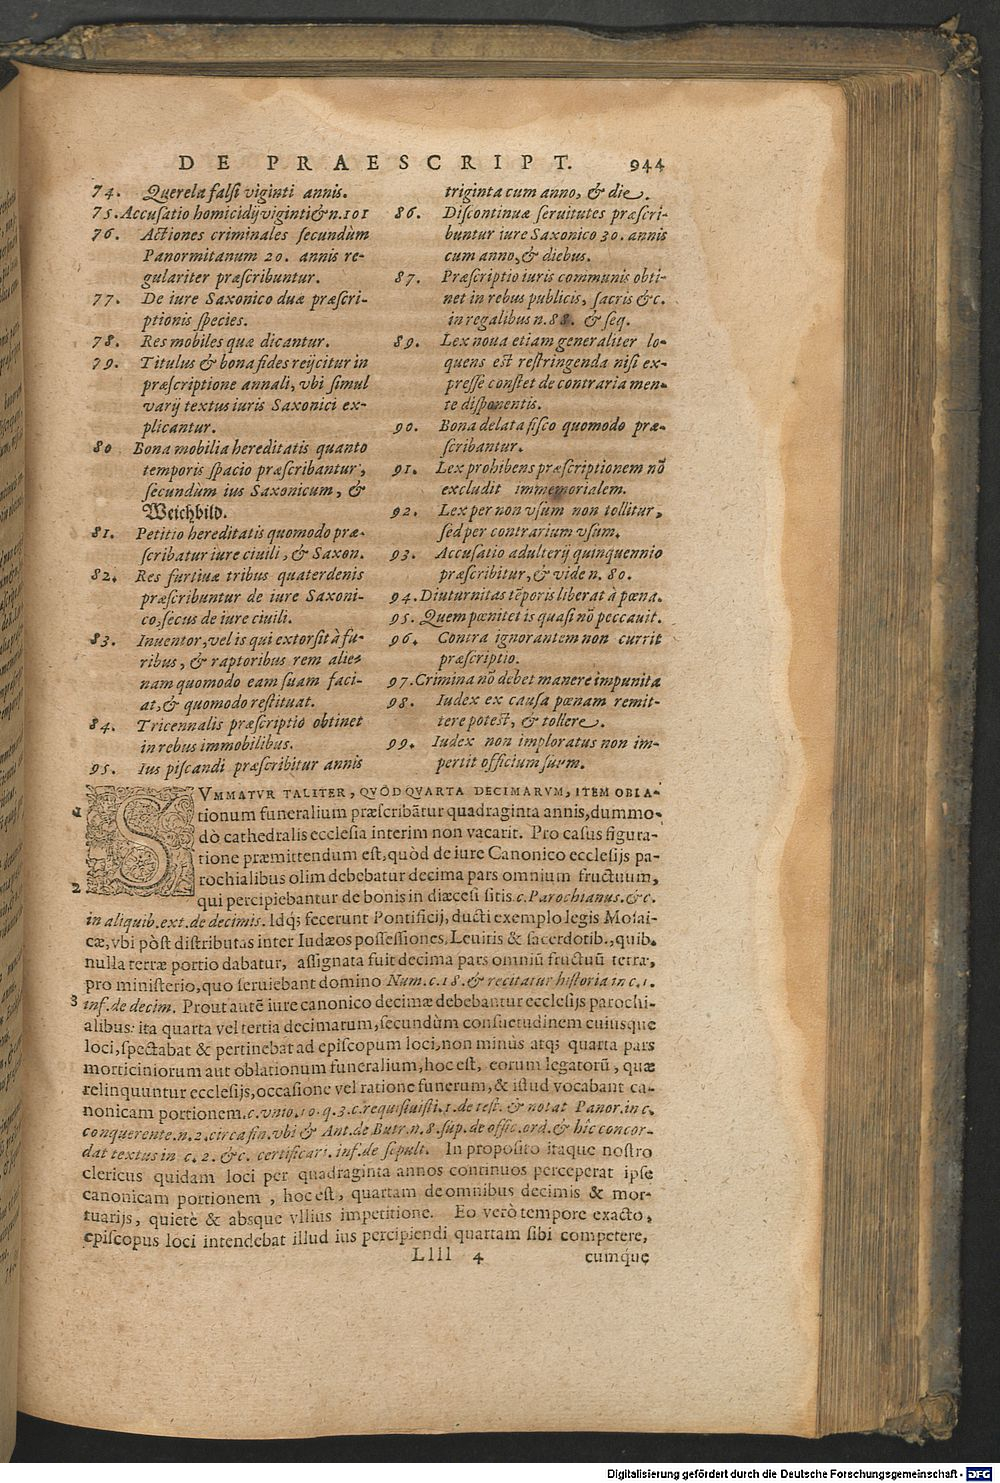 DE PRAESCRIPT. 944
74. Querela falsi viginti annis.
75. Accusatio homicidij viginti & n. 101
76. Actiones criminales secundùm
Panormitanum 20. annis re-
gulariter præscribuntur.
77. De iure Saxonico duæ præscri-
ptionis species.
78. Res mobiles quæ dicantur.
79. Titulus & bona fides reijcitur in
præscriptione annali, vbi simul
varij textus iuris Saxonici ex-
plicantur.
80 Bona mobilia hereditatis quanto
temporis spacio præscribantur,
secundùm ius Saxonicum, &
Weichbild.
81. Petitio hereditatis quomodo præ-
scribatur iure ciuili, & Saxon.
82. Res furtiuæ tribus quaterdenis
præscribuntur de iure Saxoni-
co, secus de iure ciuili.
83. Inuentor, vel is qui extorsit à fu-
ribus, & raptoribus rem alie-
nam quomodo eam suam faci-
at, & quomodo restituat.
84. Tricennalis præscriptio obtinet
in rebus immobilibus.
95. Ius piscandi præscribitur annis
triginta cum anno, & die.
86. Discontinuæ seruitutes præscri-
buntur iure Saxonico 30. annis
cum anno, & diebus.
87. Præscriptio iuris communis obti-
net in rebus publicis, sacris &c.
in regalibus n. 88. & seq.
89. Lex noua etiam generaliter lo-
quens est restringenda nisi ex-
presse constet de contraria men-
te disponentis.
90. Bona delata fisco quomodo præ-
scribantur.
91. Lex prohibens præscriptionem nō
excludit immemorialem.
92. Lex per non vsum non tollitur,
sed per contrarium vsum.
93. Accusatio adulterij quinquennio
præscribitur, & vide n. 80.
94. Diuturnitas tēporis liberat à pœna.
95. Quem pœnitet is quasi nō peccauit.
96. Contra ignorantem non currit
præscriptio.
97. Crimina nō debet manere impunita
98. Iudex ex causa pœnam remit-
tere potest, & tollere.
99. Iudex non imploratus non im-
pertit officium suum.
1 SVMMATVR TALITER, QVÒD QVARTA DECIMARVM, ITEM OBLA-
tionum funeralium præscribātur quadraginta annis, dummo-
dò cathedralis ecclesia interim non vacarit. Pro casus figura-
tione præmittendum est, quòd de iure Canonico ecclesijs pa-
rochialibus olim debebatur decima pars omnium fructuum,
2 qui percipiebantur de bonis in diœcesi sitis c. Parochianus. &c.
in aliquib. ext. de decimis. Idq; fecerunt Pontificij, ducti exemplo legis Mosai-
cæ, vbi pòst distributas inter Iudæos possessiones, Leuitis & sacerdotib., quib.
nulla terræ portio dabatur, assignata fuit decima pars omniū fructuū terræ,
pro ministerio, quo seruiebant domino Num. c. 18. & recitatur historia in c. 1.
3 inf. de decim. Prout autē iure canonico decimæ debebantur ecclesijs parochi-
alibus: ita quarta vel tertia decimarum, secundùm consuetudinem cuiusque
loci, spectabat & pertinebat ad episcopum loci, non minùs atq; quarta pars
morticiniorum aut oblationum funeralium, hoc est, eorum legatorū, quæ
relinquuntur ecclesijs, occasione vel ratione funerum, & istud vocabant ca-
nonicam portionem. c. vnio. 10. q. 3. c. requisiuisti. 1. de test. & notat Panor. in c.
conquerente. n. 2. circa fin. vbi & Ant. de Butr. n. 8. sup. de offic. ord. & hic concor-
dat textus in c. 2. &c. certificari. inf. de sepult. In proposito itaque nostro
clericus quidam loci per quadraginta annos continuos perceperat ipse
canonicam portionem, hoc est, quartam de omnibus decimis & mor-
tuarijs, quietè & absque vllius impetitione. Eo verò tempore exacto,
episcopus loci intendebat illud ius percipiendi quartam sibi competere,
Llll 4 cumque
Digitalisierung gefördert durch die Deutsche Forschungsgemeinschaft - DFG